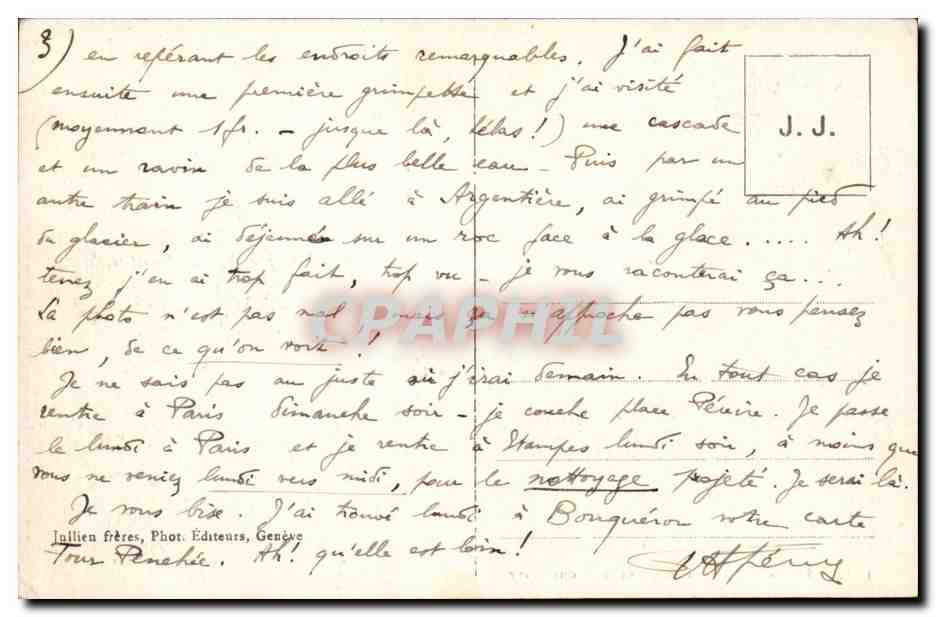 3) en repérant les endroits remarquables. J'ai fait
ensuite une première grimpette et j'ai visité
(moyennant 1 fr. - jusque là, hélas!) une cascade
J. J.
et un ravin de la plus belle eau - Puis par un
autre train je suis allé à Argentière, ai grimpé au pied
du glacier, ai déjeuné sur un roc face à la glace..... Ah!
tenez j'en ai trop fait, trop vu - je vous raconterai ça...
La photo n'est pas mal, mais ça n'approche pas vous pensez
CPAPHIL
bien, de ce qu'on voit!
Je ne sais pas au juste où j'irai demain. En tout cas je
rentre à Paris dimanche soir - je couche place Péreire. Je passe
le lundi à Paris et je rentre à Etampes lundi soir, à moins que
vous ne veniez lundi vers midi, pour le nettoyage projeté. Je serai là.
Je vous bise. J'ai trouvé lundi à Bouquéron votre carte
Jullien frères, Phot. Éditeurs, Genève
Tour Penchée. Ah! qu'elle est loin!